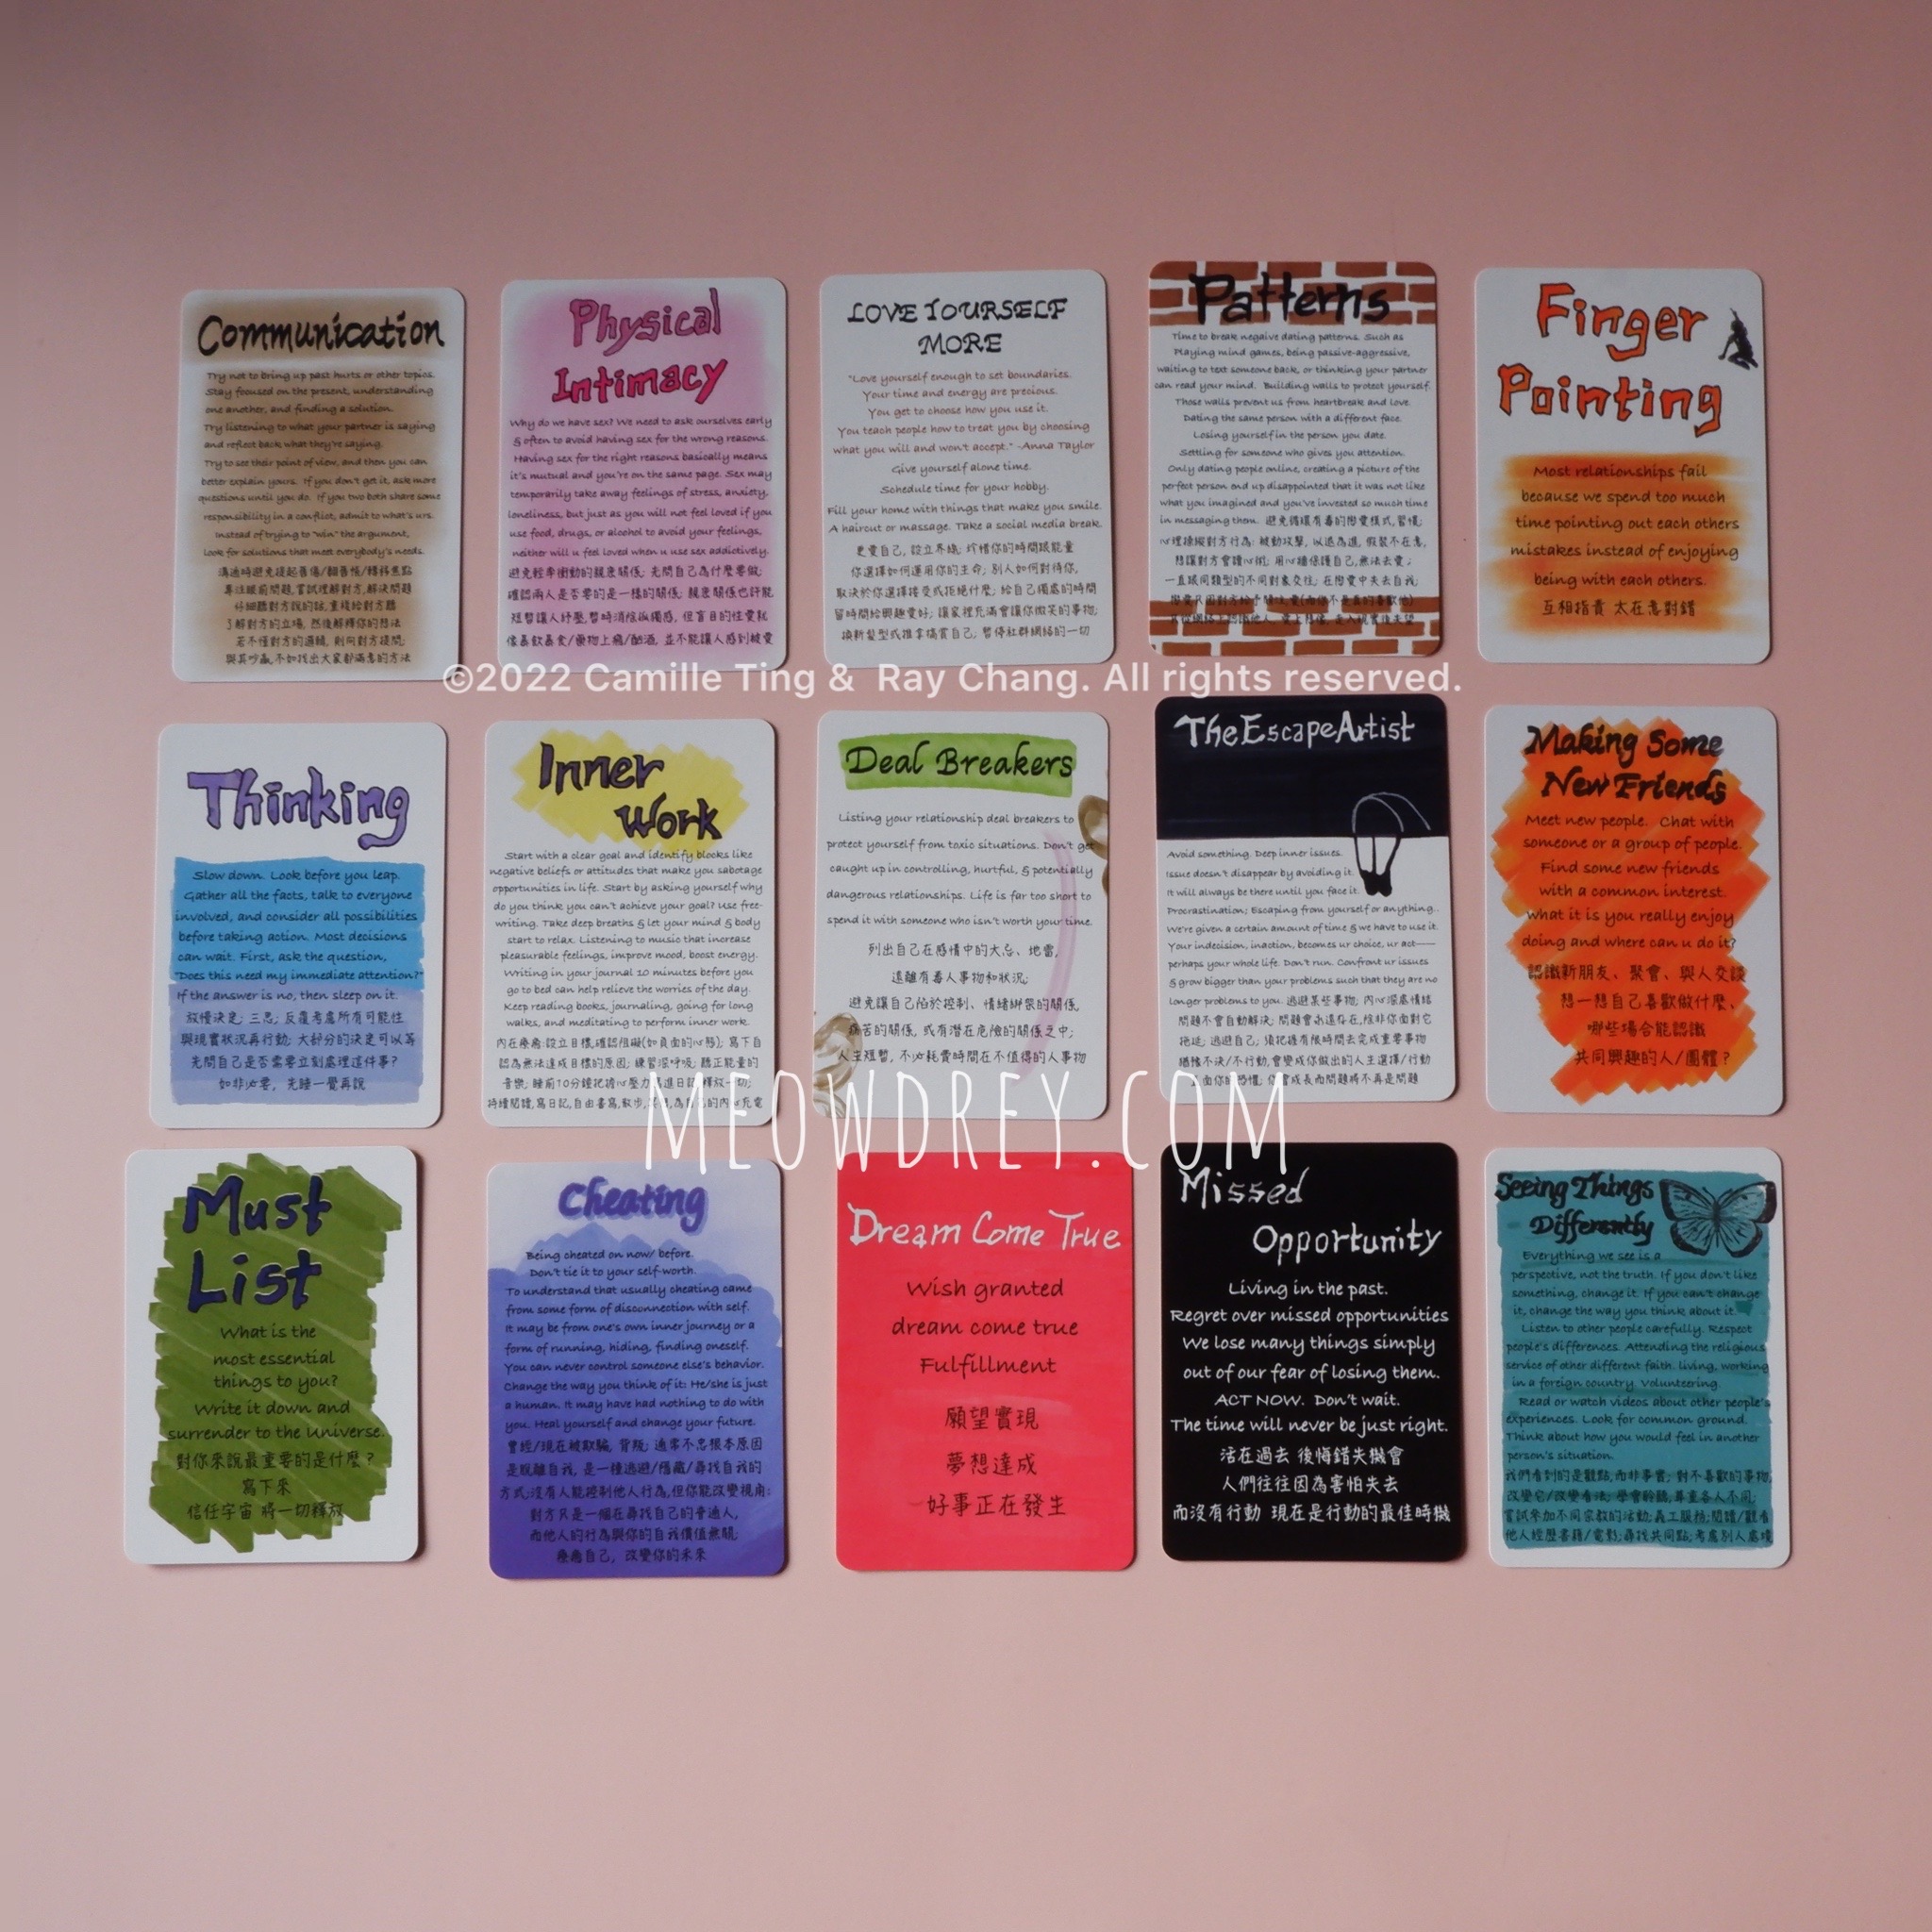 Communication
Try not to bring up past hurts or other topics.
Stay focused on the present, understanding
one another, and finding a solution.
Try listening to what your partner is saying
and reflect back what they're saying.
Try to see their point of view, and then you can
better explain yours. If you don't get it, ask more
questions until you do. If you two both share some
responsibility in a conflict, admit to what's urs.
Instead of trying to "win" the argument,
look for solutions that meet everybody's needs.
溝通時避免提起舊傷/翻舊帳/轉移焦點
專注眼前問題,嘗試理解對方,解決問題
仔細聽對方說的話,重複給對方聽
了解對方的立場, 然後解釋你的想法
若不懂對方的邏輯, 則向對方提問;
與其吵贏,不如找出大家都滿意的方法
Physical
Intimacy
Why do we have sex? We need to ask ourselves early
& often to avoid having sex for the wrong reasons.
Having sex for the right reasons basically means
it's mutual and you're on the same page. Sex may
temporarily take away feelings of stress, anxiety,
loneliness, but just as you will not feel loved if you
use food, drugs, or alcohol to avoid your feelings,
neither will u feel loved when u use sex addictively.
避免輕率衝動的親密關係: 先問自己為什麼要做;
確認兩人是否要的是一樣的關係; 親密關係也許能
短暫讓人紓壓,暫時消除孤獨感, 但盲目的性愛就
像暴飲暴食/藥物上癮/酗酒, 並不能讓人感到被愛
LOVE YOURSELF
MORE
"Love yourself enough to set boundaries.
Your time and energy are precious.
You get to choose how you use it.
You teach people how to treat you by choosing
what you will and won't accept." -Anna Taylor
Give yourself alone time.
Schedule time for your hobby.
Fill your home with things that make you smile.
A haircut or massage. Take a social media break.
更愛自己, 設立界線; 珍惜你的時間跟能量
你選擇如何運用你的生命; 別人如何對待你,
取決於你選擇接受或拒絕什麼; 給自己獨處的時間
留時間給興趣愛好; 讓家裡充滿會讓你微笑的事物;
換新髮型或推拿犒賞自己; 暫停社群網絡的一切
Patterns
Time to break negaive dating patterns. Such as
Playing mind games, being passive-aggressive,
waiting to text someone back, or thinking your partner
can read your mind. Building walls to protect yourself.
Those walls prevent us from heartbreak and love.
Dating the same person with a different face.
Losing yourself in the person you date.
Settling for someone who gives you attention.
Only dating people online, creating a picture of the
perfect person end up disappointed that it was not like
what you imagined and you've invested so much time
in messaging them. 避免循環有毒的戀愛模式,習慣:
心理操縱對方行為: 被動攻擊, 以退為進, 假裝不在意,
想讓對方會讀心術; 用心牆保護自己,無法去愛;
一直跟同類型的不同對象交往; 在戀愛中失去自我;
Finger
Pointing
Most relationships fail
because we spend too much
time pointing out each others
mistakes instead of enjoying
being with each others.
互相指責 太在意對錯
©2022 Camille Ting & Ray Chang. All rights reserved.
Thinking
Slow down. Look before you leap.
Gather all the facts, talk to everyone
involved, and consider all possibilities
before taking action. Most decisions
can wait. First, ask the question,
"Does this need my immediate attention?"
If the answer is no, then sleep on it.
放慢決定; 三思; 反覆考慮所有可能性
與現實狀況再行動; 大部分的決定可以等
先問自己是否需要立刻處理這件事?
如非必要, 先睡一覺再說
Inner
Work
Start with a clear goal and identify blocks like
negative beliefs or attitudes that make you sabotage
opportunities in life. Start by asking yourself why
do you think you can't achieve your goal? Use free-
writing. Take deep breaths & let your mind & body
start to relax. Listening to music that increase
pleasurable feelings, improve mood, boost energy.
Writing in your journal 10 minutes before you
go to bed can help relieve the worries of the day.
Keep reading books, journaling, going for long
walks, and meditating to perform inner work.
內在療癒:設立目標,確認阻礙(如負面的心態); 寫下自
認為無法達成目標的原因; 練習深呼吸; 聽正能量的
音樂; 睡前10分鐘把擔心壓力寫進日記,釋放一切;
持續閱讀,寫日記,自由書寫,散步,為自己的內心充電
Deal Breakers
Listing your relationship deal breakers to
protect yourself from toxic situations. Don't get
caught up in controlling, hurtful, & potentially
dangerous relationships. Life is far too short to
spend it with someone who isn't worth your time.
列出自己在感情中的大忌、地雷,
遠離有毒人事物和狀況;
避免讓自己陷於控制、情緒綁架的關係,
痛苦的關係, 或有潛在危險的關係之中;
人生短暫, 不必耗費時間在不值得的人事物
The Escape Artist
Avoid something. Deep inner issues.
Issue doesn't disappear by avoiding it.
It will always be there until you face it.
Procrastination; Escaping from yourself or anything..
We're given a certain amount of time & we have to use it.
Your indecision, inaction, becomes ur choice, ur act——
perhaps your whole life. Don't run. Confront ur issues
& grow bigger than your problems such that they are no
longer problems to you. 逃避某些事物; 內心深處情結
問題不會自動解決; 問題會永遠存在,除非你面對它
拖延; 逃避自己; 須把握有限時間去完成重要事物
猶豫不決/不行動,會變成你做出的人生選擇/行動
面你的恐懼; 你會成長而問題將不再是問題
Making Some
New Friends
Meet new people. Chat with
someone or a group of people.
Find some new friends
with a common interest.
What it is you really enjoy
doing and where can u do it?
認識新朋友、聚會、與人交談
想一想自己喜歡做什麼、
哪些場合能認識
共同興趣的人/團體?
MEOWDREY.COM
Must
List
What is the
most essential
things to you?
Write it down and
surrender to the Universe.
對你來說最重要的是什麼?
寫下來
信任宇宙 將一切釋放
Cheating
Being cheated on now/ before.
Don't tie it to your self-worth.
To understand that usually cheating came
from some form of disconnection with self.
It may be from one's own inner journey or a
form of running, hiding, finding oneself.
You can never control someone else's behavior.
Change the way you think of it: He/she is just
a human. It may have had nothing to do with
you. Heal yourself and change your future.
曾經/現在被欺騙, 背叛; 通常不忠根本原因
是脫離自我, 是一種逃避/隱藏/尋找自我的
方式;沒有人能控制他人行為,但你能改變視角:
對方只是一個在尋找自己的普通人,
而他人的行為與你的自我價值無關;
療癒自己, 改變你的未來
Dream Come True
Wish granted
dream come true
Fulfillment
願望實現
夢想達成
好事正在發生
Missed
Opportunity
Living in the past.
Regret over missed opportunities
We lose many things simply
out of our fear of losing them.
ACT NOW. Don't wait.
The time will never be just right.
活在過去 後悔錯失機會
人們往往因為害怕失去
而沒有行動 現在是行動的最佳時機
Seeing Things
Differently
Everything we see is a
perspective, not the truth. If you don't like
something, change it. If you can't change
it, change the way you think about it.
Listen to other people carefully. Respect
people's differences. Attending the religious
service of other different faith. living, working
in a foreign country. Volunteering.
Read or watch videos about other people's
experiences. Look for common ground.
Think about how you would feel in another
person's situation.
我們看到的是觀點,而非事實; 對不喜歡的事物,
改變它/改變看法; 學會聆聽,尊重各人不同;
嘗試參加不同宗教的活動;義工服務;閱讀/觀看
他人經歷書籍/電影;尋找共同點;考慮別人處境